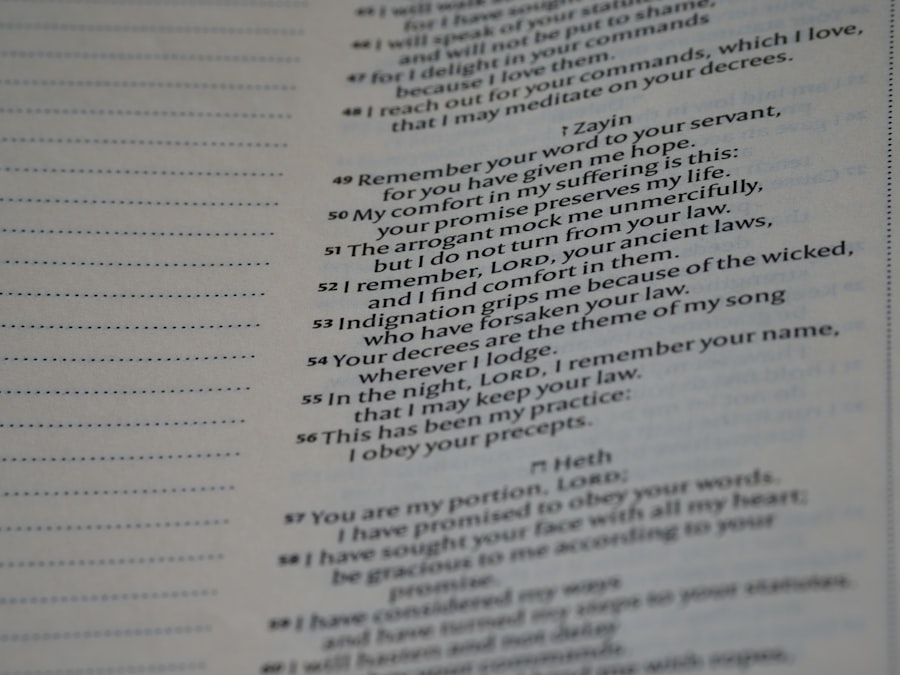 I will walk
for I have sought
46 I will speak of your statutes
and will not be put to shame,
47 for I delight in your commands
because I love them.
48 I reach out for your commands, which I love,
that I may meditate on your decrees.
ז Zayin
49 Remember your word to your servant,
for you have given me hope.
50 My comfort in my suffering is this:
your promise preserves my life.
51 The arrogant mock me unmercifully,
but I do not turn from your law.
52 I remember, LORD, your ancient laws,
and I find comfort in them.
53 Indignation grips me because of the wicked,
who have forsaken your law.
54 Your decrees are the theme of my song
wherever I lodge.
55 In the night, LORD, I remember your name,
that I may keep your law.
56 This has been my practice:
I obey your precepts.
ח Heth
57 You are my portion, LORD;
I have promised to obey your words.
58 I have sought your face with all my heart;
be gracious to me according to your
promise.
59 I have considered my ways
and have turned my steps to your statutes.
60 I will hasten and not delay
your commands.